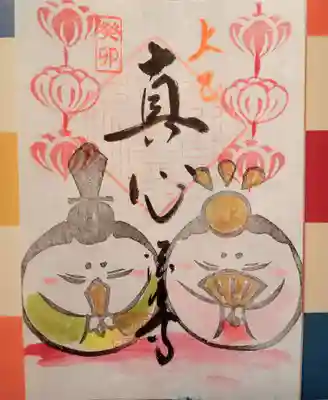 上巳
真心
癸卯